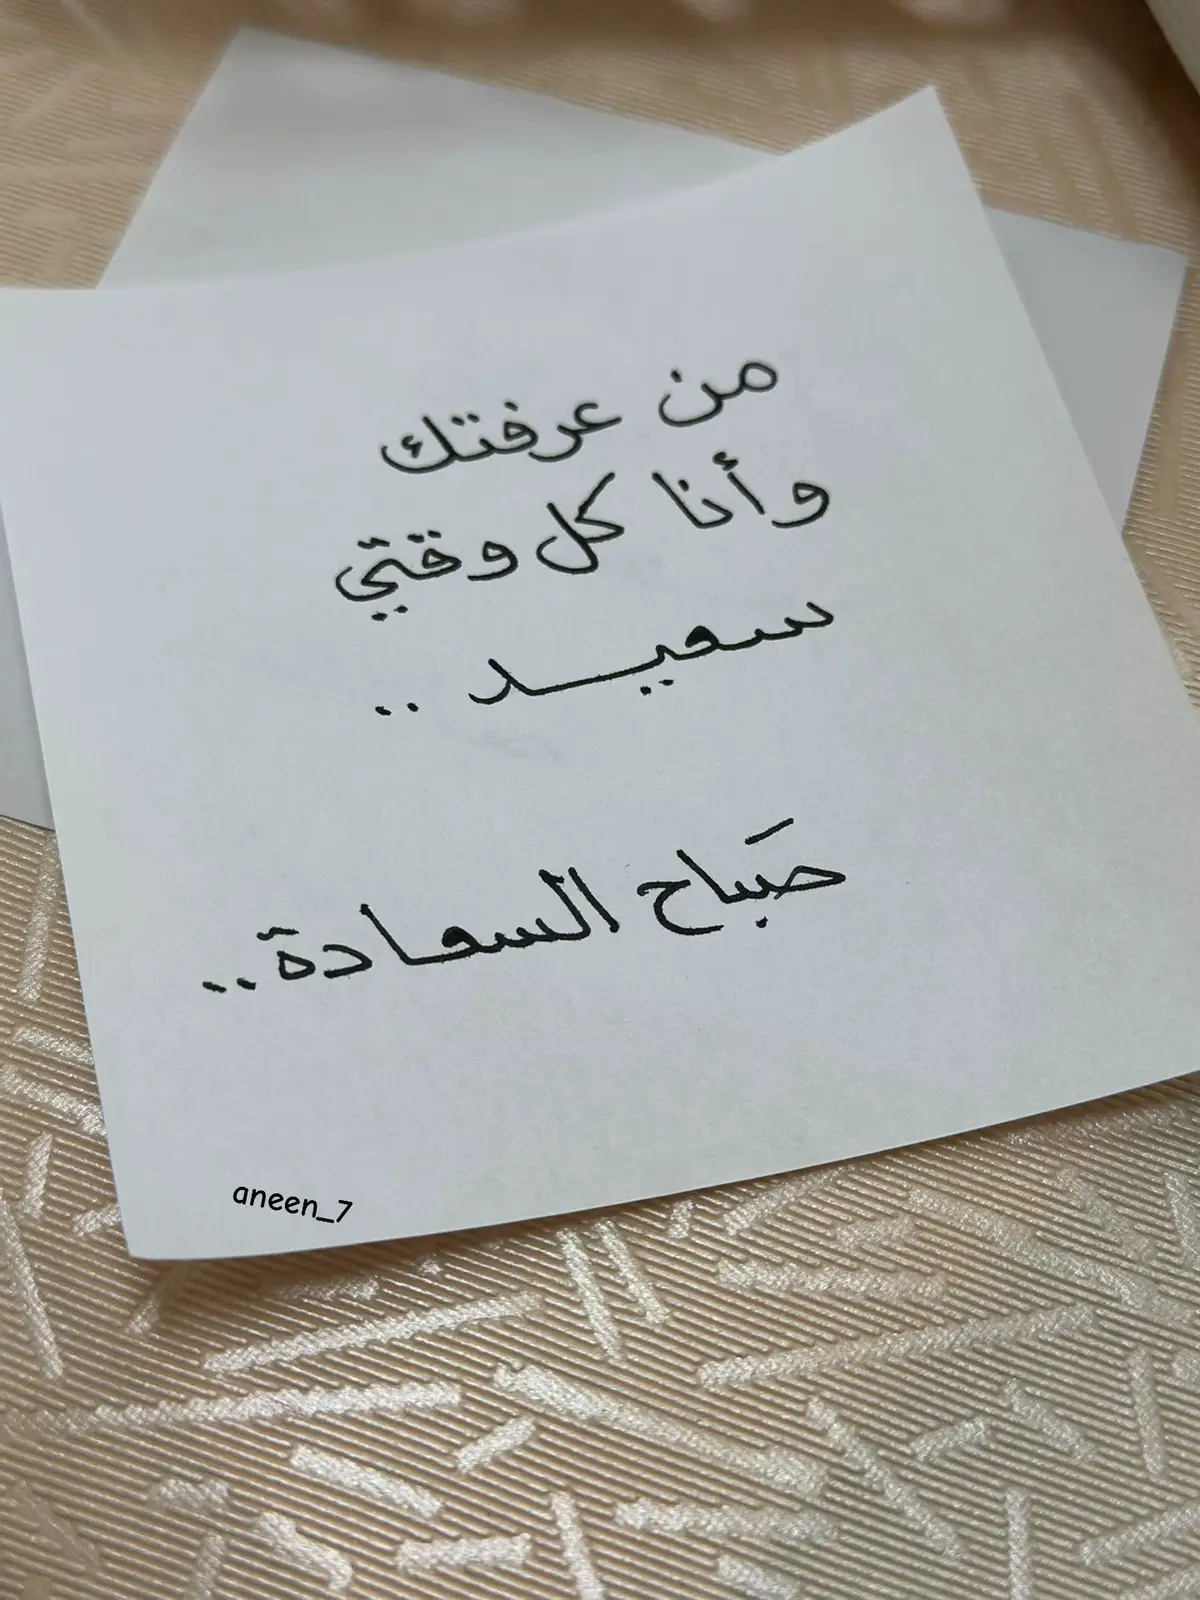 من عرفتك
وأنا كل وقتي
سعيـــد ..
صَباح السعادة..
aneen_7